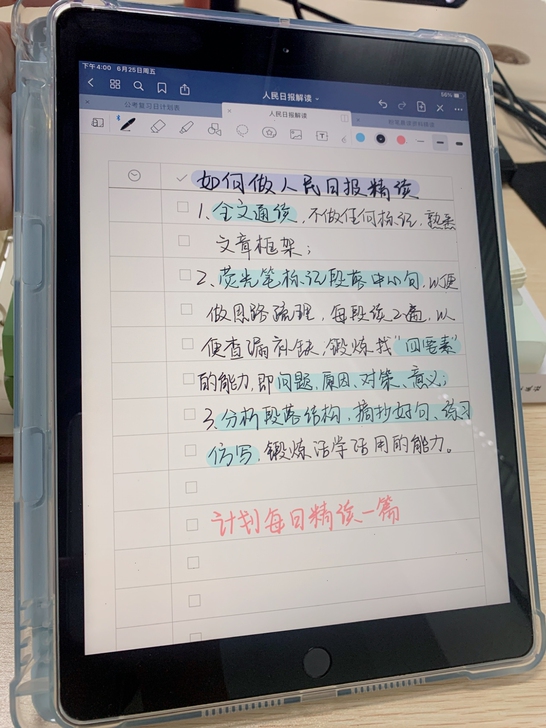 下午4:00 6月25日周五
56%
人民日报解读
公考复习日计划表
人民日报解读
如何做人民日报精读
1.全文通读,不做任何标记,熟悉
文章框架;
2.荧光笔标记段落中心句,以便
做思路疏理,每段读2遍,以
便查漏补缺,锻炼找"四要素"
的能力,即问题、原因、对策、意义;
3.分析段落结构,摘抄好句、练习
仿写,锻炼活学活用的能力。
计划每日精读一篇